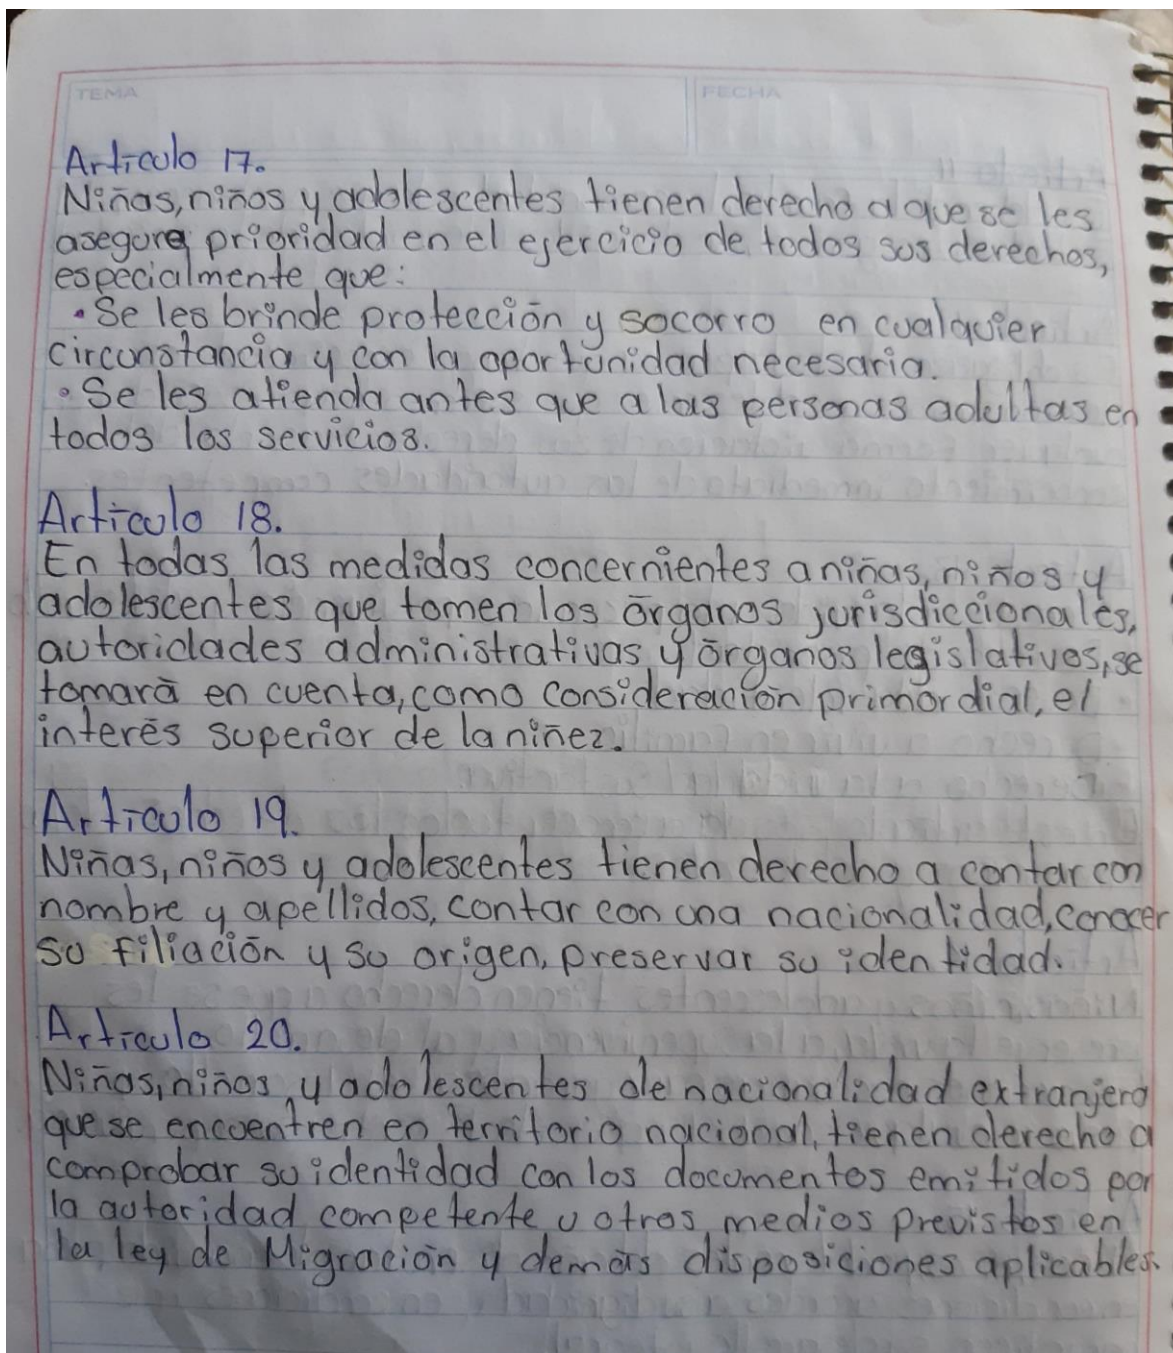 TEMA
FECHA
Artículo 17.
Niñas, niños y adolescentes tienen derecho a que se les
asegure prioridad en el ejercicio de todos sus derechos,
especialmente que:
• Se les brinde protección y socorro en cualquier
circunstancia y con la oportunidad necesaria.
• Se les atienda antes que a las personas adultas en
todos los servicios.
Artículo 18.
En todas las medidas concernientes a niñas, niños y
adolescentes que tomen los órganos jurisdiccionales,
autoridades administrativas y órganos legislativos, se
tomará en cuenta, como consideración primordial, el
interés superior de la niñez.
Artículo 19.
Niñas, niños y adolescentes tienen derecho a contar con
nombre y apellidos, contar con una nacionalidad, conocer
su filiación y su origen, preservar su identidad.
Artículo 20.
Niñas, niños y adolescentes de nacionalidad extranjera
que se encuentren en territorio nacional, tienen derecho a
comprobar su identidad con los documentos emitidos por
la autoridad competente u otros medios previstos en
la ley de Migración y demás disposiciones aplicables.